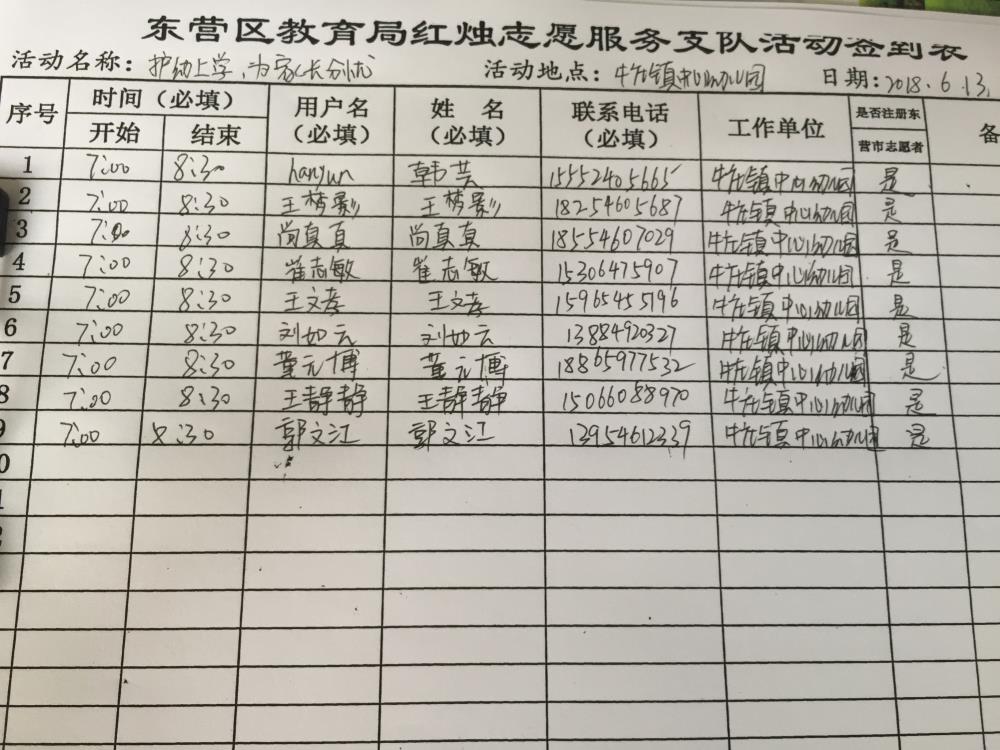 东营区教育局红烛志愿服务支队活动签到表
活动名称：护幼上学，为家长分忧 活动地点：牛庄镇中心幼儿园 日期：2018.6.13.
序号 时间（必填） 用户名（必填） 姓名（必填） 联系电话（必填） 工作单位 是否注册东营市志愿者 备
开始 结束
1 7:00 8:30 hanyun 韩芸 15552405665 牛庄镇中心幼儿园 是
2 7:00 8:30 王梦影 王梦影 18254605687 牛庄镇中心幼儿园 是
3 7:00 8:30 尚真真 尚真真 18554607029 牛庄镇中心幼儿园 是
4 7:00 8:30 崔志敏 崔志敏 15306475907 牛庄镇中心幼儿园 是
5 7:00 8:30 王文孝 王文孝 15965455196 牛庄镇中心幼儿园 是
6 7:00 8:30 刘如云 刘如云 13884920327 牛庄镇中心幼儿园 是
7 7:00 8:30 董元博 董元博 18865977532 牛庄镇中心幼儿园 是
8 7:00 8:30 王静静 王静静 15066088970 牛庄镇中心幼儿园 是
9 7:00 8:30 郭文江 郭文江 13954612339 牛庄镇中心幼儿园 是
0
1